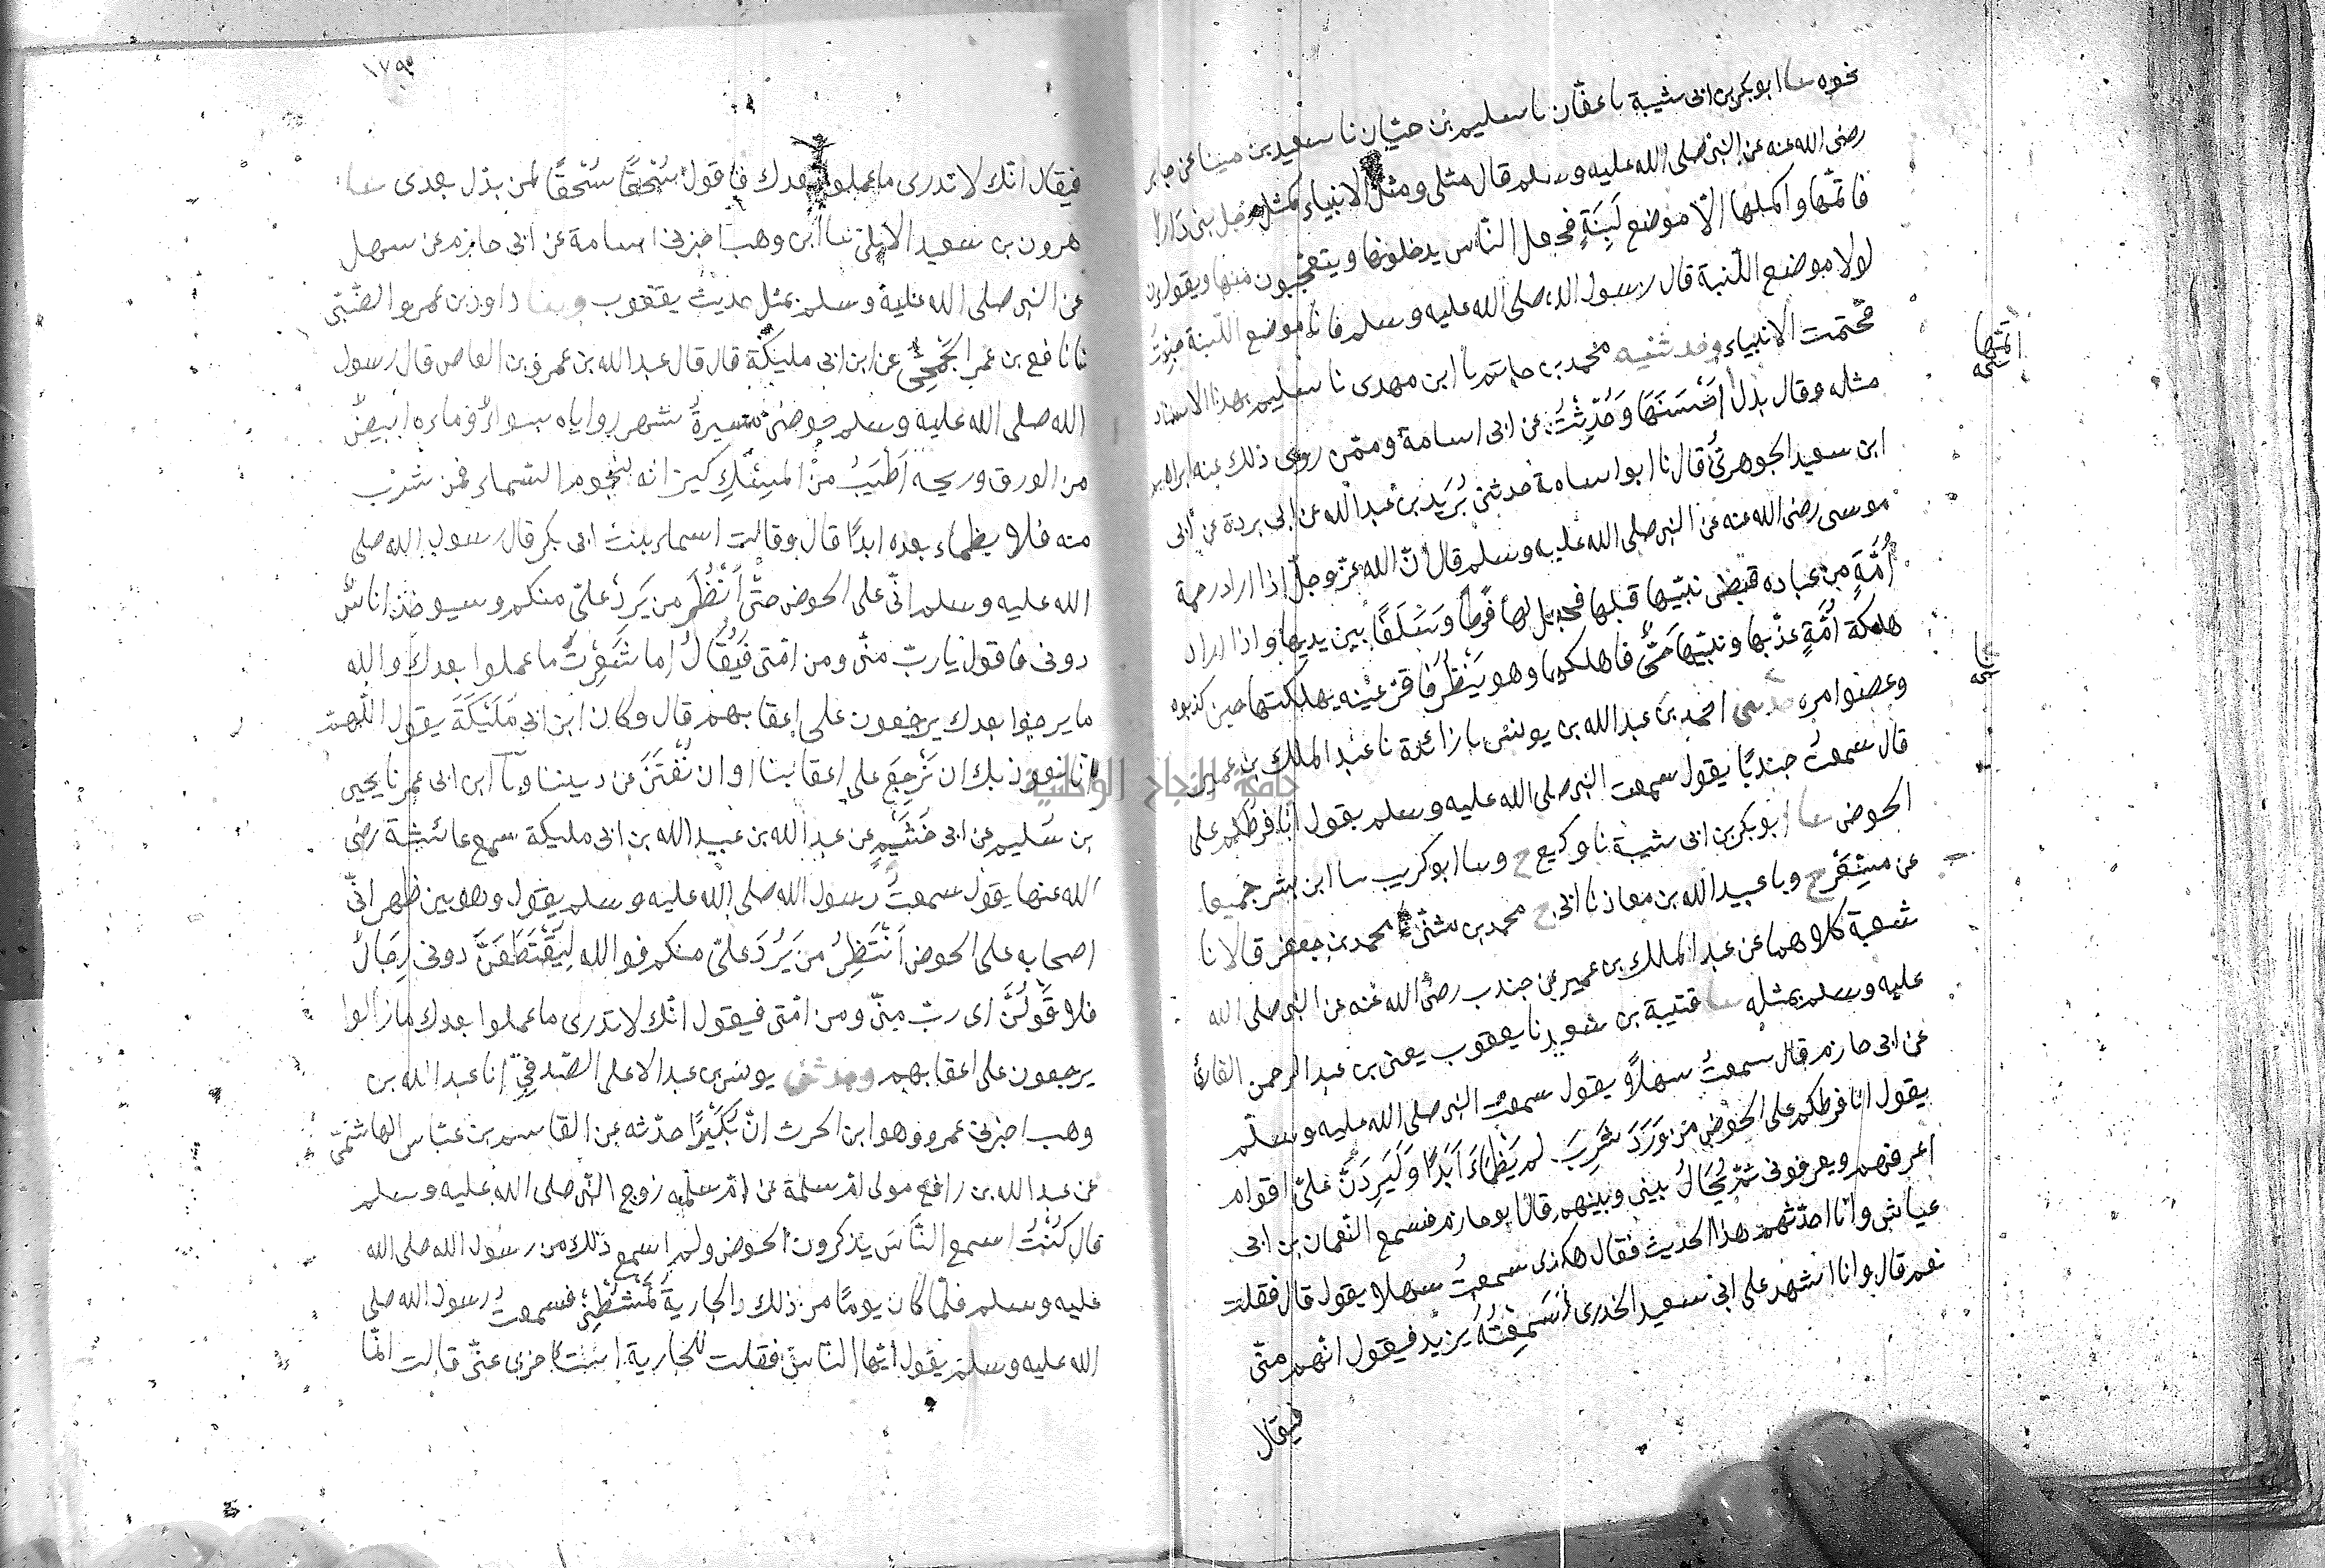 نحوه سا ابوبكر بن ابى شيبة نا عفّان نا سليم بن حيّان نا سعيد بن مينا عن جابر
رضى الله عنه عن النبى صلى الله عليه وسلم قال مثلى ومثل الانبياء كمثل رجل بنى دارا
فاتمّها واكملها الّا موضع لَبِنَةٍ فجعل النّاس يدخلونها ويتعجّبون منها ويقولون
لولا موضع اللّبنة قال رسول الله صلى الله عليه وسلم فانا موضع اللّبنة جئتُ
فختمت الانبياء وحدثنيه محمد بن حاتم نا ابن مهدى نا سليم بهذا الاسناد
اتمّها
نسخه
مثله وقال بدل احْسَنَهَا وَحُدِّثْتُ عن ابى اسامة وممّن روى ذلك عنه ابراهيم
ابن سعيد الجوهرىُّ قال نا ابو اسامة حدثنى بُرَيد بن عبدالله عن ابى بردة عن ابى
موسى رضى الله عنه عن النبى صلى الله عليه وسلم قال انّ الله عزّ وجلّ اذا اراد رحمة
اُمَّةٍ من عباده قبض نبيّها قبلها فجعل لها فرطًا وَسَلَفًا بين يديها واذا اراد
هلكة اُمَّةٍ عذّبها ونبيّها حَىٌّ فاهلكها وهو يَنْظُرُ فاقرّ عينه بهلكتها حين كذبوه
وعصوا امره حدثنى احمد بن عبدالله بن يونس نا زائدة نا عبد الملك بن عمير
قال سمعتُ جندبًا يقول سمعت النبى صلى الله عليه وسلم يقول انا فرطكم على
الحوض سا ابوبكر بن ابى شيبة نا وكيع ح وسا ابوكريب سا ابن بشر جميعا
عن مِسْعَرٍ ح ونا عبيدالله بن معاذ نا ابى ح محمد بن مثنّى نا محمد بن جعفر قالا نا
شعبة كلاهما عن عبد الملك بن عمير عن جندب رضى الله عنه عن النبى صلى الله
عليه وسلم بمثله سا قتيبة بن سعيد نا يعقوب يعنى بن عبد الرحمن القارئ
عن ابى حازم قال سمعتُ سهلًا يقول سمعت النبى صلى الله عليه وسلم
يقول انا فرطكم على الحوض من وَرَدَ شَرِبَ لم يَظْمَاءَ اَبَدًا وَلَيَرِدَنَّ علىّ اقوام
اعرفهم ويعرفونى ثمّ يُحَالُ بينى وبينهم قال ابوحازم فسمع النّعمان بن ابى
عياش وانا احدّثهم هذا الحديث فقال هكذى سمعتُ سهلا يقول قال فقلت
نعم قال وانا اشهد على ابى سعيد الخدرى لَسَمِعْتُهُ يزيد فيقول انّهم منّى
فيقال
١٧٩
فيقال انّك لا تدرى ما عملوا بعدك فاقول سُحْقًا سُحْقًا لمن بدّل بعدى سا
هرون بن سعيد الايلىّ سا ابن وهب اخبرنى اسامة عن ابى حازم عن سهل
عن النبى صلى الله عليه وسلم بمثل حديث يعقوب وسا داود بن عمرو الضّبّى
نا نافع بن عمر الجُمَحِىُّ عن ابن ابى مليكة قال قال عبدالله بن عمرو بن العاص قال رسول
الله صلى الله عليه وسلم حوضى مسيرةُ شهر وزواياه سواءٌ وماءه ابيضُ
من الورق وريحه اَطْيَبُ مِنْ المِسْكِ كيزانه كنجوم السّماء فمن شرب
منه فلا يظماء بعده ابدًا قال وقالت اسماء بنت ابى بكر قال رسول الله صلى
الله عليه وسلم انّى على الحوض حتّى اَنْظُرَ من يَرِدُ علىّ منكم وسيوخذ اناسٌ
دونى فاقول يا ربّ منّى ومن امّتى فَيُقَالُ اما شَعَرْتَ ما عملوا بعدك والله
ما برحوا بعدك يرجعون على اعقابهم قال وكان ابن ابى مُلَيْكَةَ يقول اللّهمّ
انا نعوذ بك ان نَرْجِعَ على اعقابنا او ان نُفْتَنَ عن ديننا ونا ابن ابى عمر نا يحيى
بن سُليم عن ابى خُثَيْمٍ عن عبدالله بن عبيدالله بن ابى مليكة سمع عائشة رضى
الله عنها يقول سمعتُ رسول الله صلى الله عليه وسلم يقول وهو بين ظهرانّى
اصحابه على الحوض اَنْتَظِرُ مَن يَرِدُ علىّ منكم فوالله لَيُقْتَطَعَنَّ دونى رِجَالٌ
فلاقُولَنَّ اى ربّ منّى ومن امّتى فيقول انّك لا تدرى ما عملوا بعدك ما زالوا
يرجعون على اعقابهم وحدثنى يونس بن عبد الاعلى الصّدفىّ انا عبدالله بن
وهب اخبرنى عمرو وهو ابن الحرث انّ بُكَيْرًا حدّثه عن القاسم بن عبّاس الهاشمىّ
عن عبدالله بن رافع مولى امّ سلمة عن امّ سلمة زوج النّبى صلى الله عليه وسلم
قال كُنْتُ اسمع النَّاسَ يذكرون الحوض ولم اسمع ذلك من رسول الله صلى الله
عليه وسلم فلمّا كان يومًا من ذلك والجاريةُ تَمْشُطُنِى فسمعت رسول الله صلى
الله عليه وسلم يقول ايّها النّاس فقلت للجارية استأخرى عنّى قالت انّما
جامعة النجاح الوطنية